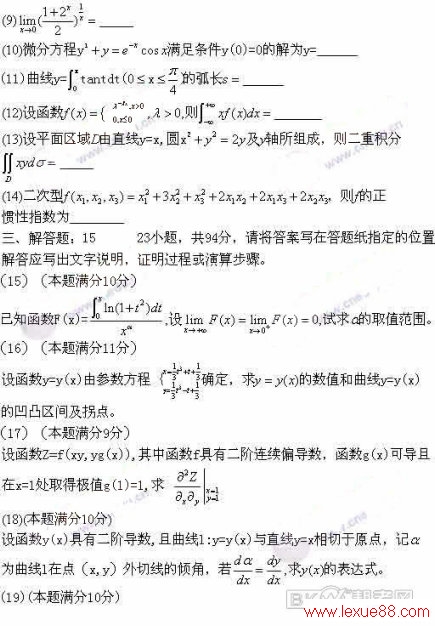 (9)lim x→0 ((1+2^x)/2)^(1/x) = ____
(10)微分方程y¹+y=e^(-x) cos x满足条件y(0)=0的解为y=____
(11)曲线y=∫₀ˣ tantdt(0≤x≤π/4)的弧长s=____
(12)设函数f(x)={ , x>0 0,x≤0 ,λ>0,则∫₋∞⁺∞ xf(x)dx=____
(13)设平面区域D由直线y=x,圆x²+y²=2y及y轴所组成，则二重积分
∬_D xydσ=____
(14)二次型f(x₁,x₂,x₃)=x₁²+3x₂²+x₃²+2x₁x₂+2x₁x₃+2x₂x₃，则f的正
惯性指数为____
三、解答题：15 23小题，共94分，请将答案写在答题纸指定的位置
解答应写出文字说明，证明过程或演算步骤。
(15)（本题满分10分）
已知函数F(x)=∫₀ˣ ln(1+t²)dt / x^α,设lim x→+∞ F(x)=lim x→0⁺ F(x)=0,试求α的取值范围。
(16)（本题满分11分）
设函数y=y(x)由参数方程{x=1/3 t³+t+1/3 y=1/3 t³-t+1/3确定，求y=y(x)的数值和曲线y=y(x)
的凹凸区间及拐点。
(17)（本题满分9分）
设函数Z=f(xy,yg(x)),其中函数f具有二阶连续偏导数，函数g(x)可导且
在x=1处取得极值g(1)=1,求 ∂²Z/∂x∂y | x=1 y=1
(18)(本题满分10分)
设函数y(x)具有二阶导数,且曲线l:y=y(x)与直线y=x相切于原点，记α
为曲线l在点（x,y）外切线的倾角，若dα/dx=dy/dx,求y(x)的表达式。
(19)(本题满分10分)
www.lexue88.com